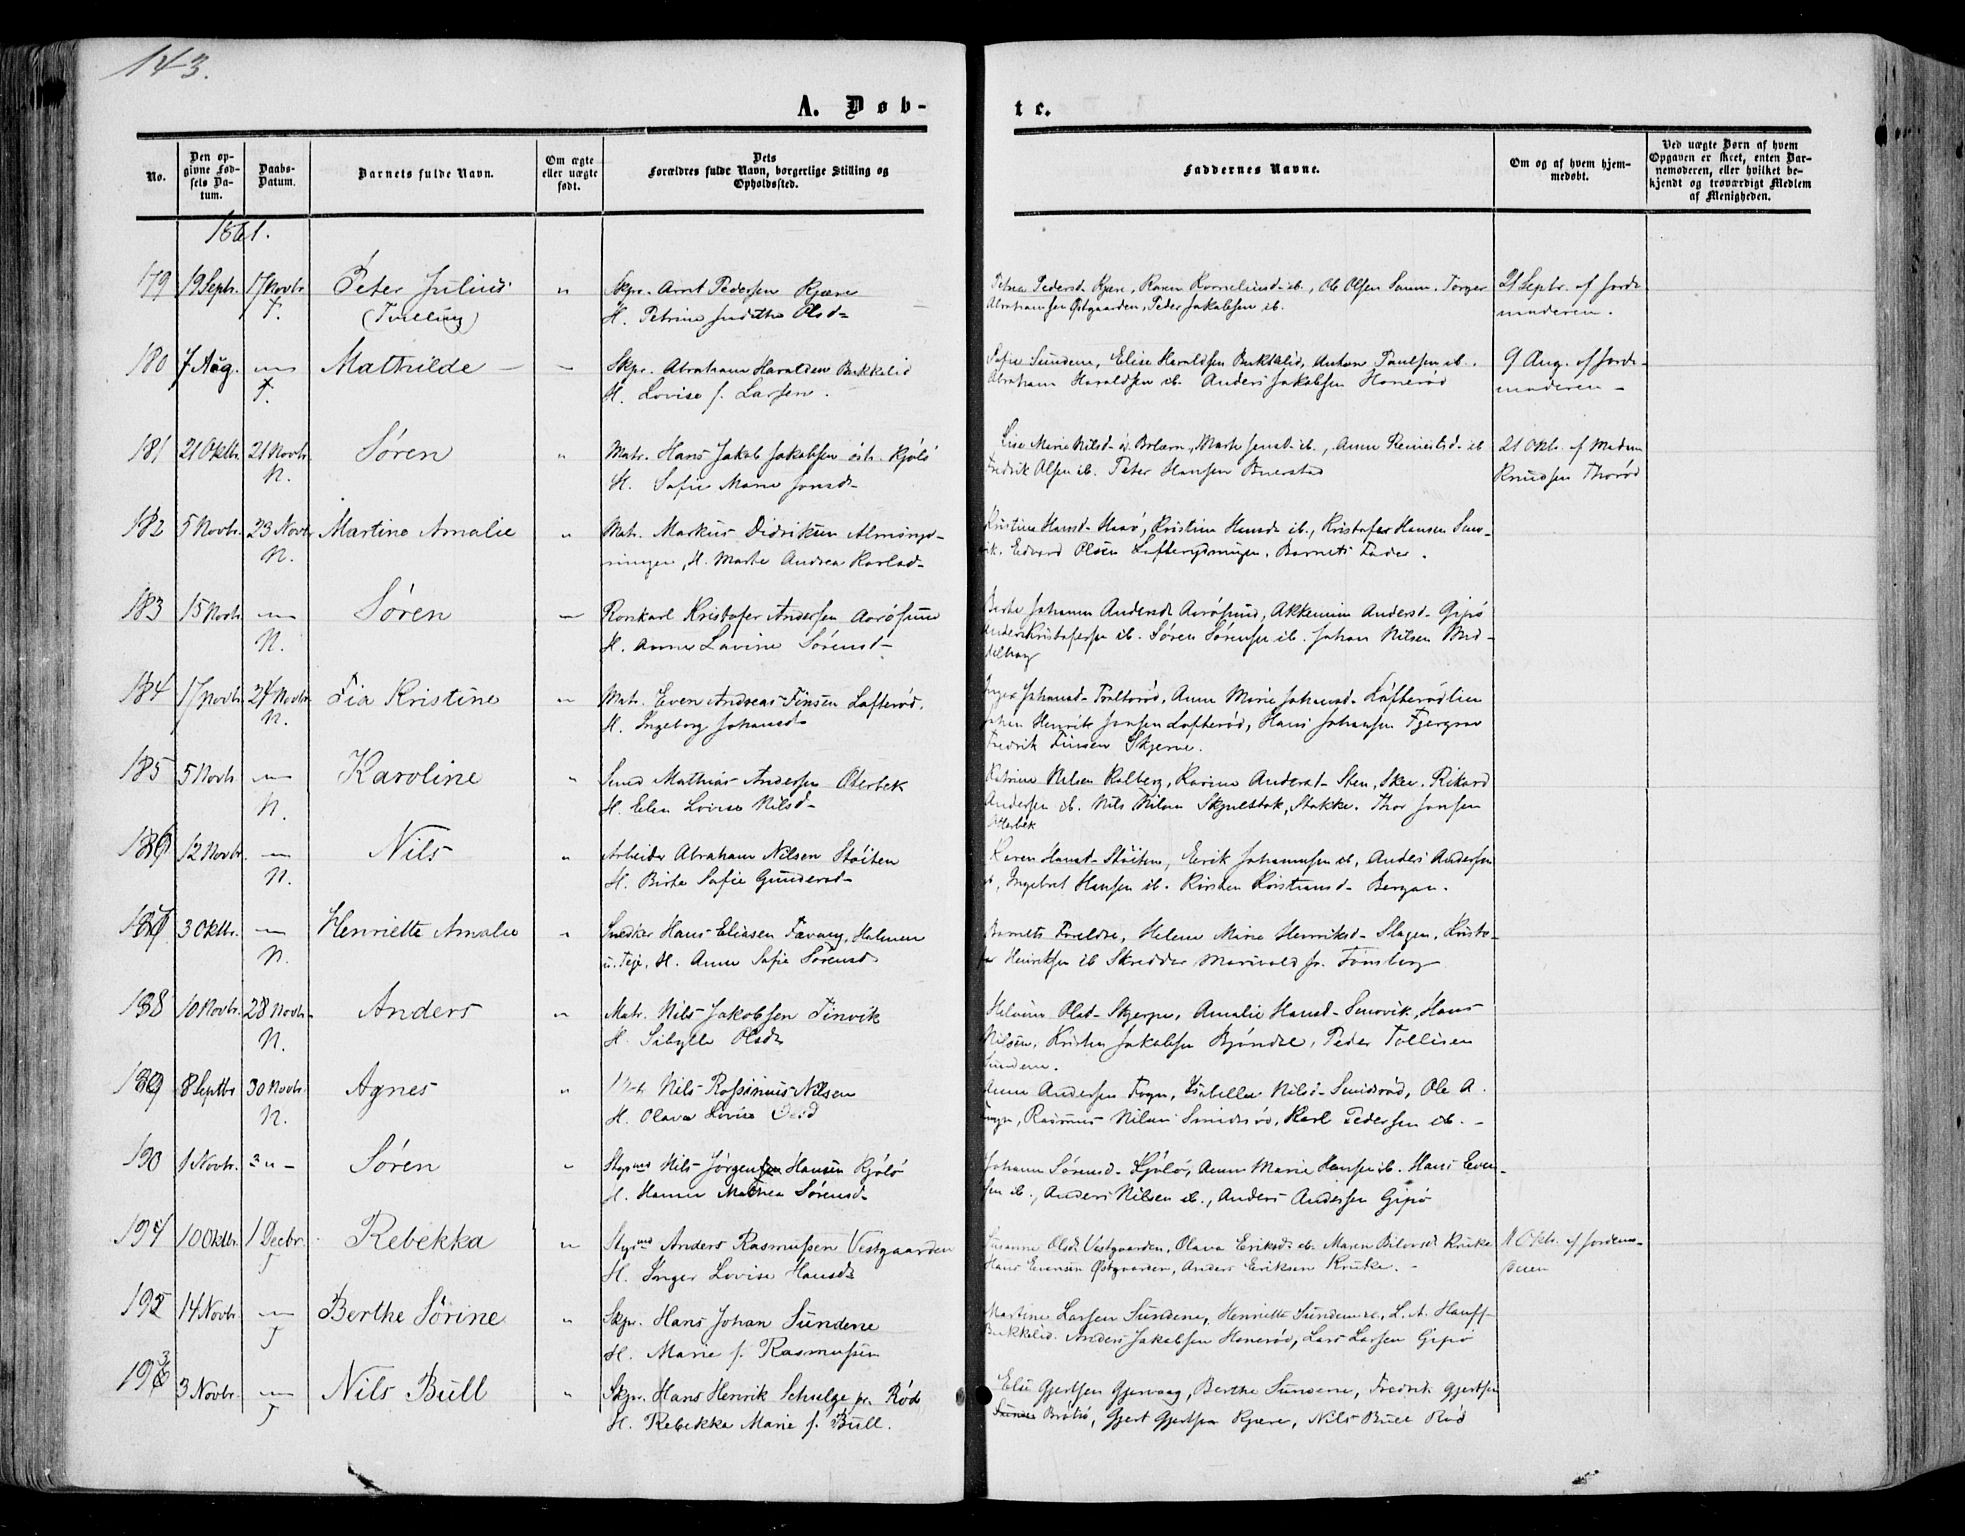 143.
A. Døb-
te.
No.
Den op-
givne Fød-
sels Da-
tum.
Daabs-
Datum.
Barnets fulde Navn.
Om ægte
eller uægte
født.
Dets
Forældres fulde Navn, borgerlige Stilling og
Opholdssted.
Faddernes Navne.
Om og af hvem hjem-
medøbt.
Ved uægte Børn af hvem
Opgaven er skeet, enten Bar-
nemoderen, eller hvilket be-
kjendt og troværdigt Medlem
af Menigheden.
1861.
179 19 Septr. 17 Novbr Peter Julius " Skpr. Arnt Pedersen Kjære
T. (Tvilling) H. Petrine Judithe Olsd-
Pedersd- Kjære, Karen Korneliusd- ib., Ole Olsen
Abrahamsen Østgaarden, Peder Jakobsen ib.
21 Septr. af Jorde
moderen.
180 7 Aug. - " - Mathilde - - Skpr. Abraham Haraldsen Bukkelid
T. H. Lovise f. Larsen.
Sofie Sundene, Elise Haraldsen Bukkelid, Anton Paulsen ib.
Abraham Haraldsen ib. Anders Jakobsen Honerød
9 Aug. af Jorde-
moderen -
181 21 Oktbr. 21 Novbr. Søren " Matr. Hans Jakob Jakobsen østr. Kjølø
N. H. Sofie Marie Jonsd-
Lise Marie Nilsd- Bolærn, Marte Jensd- ib., Anne Reinertsd- ib
Fredrik Olsen ib. Peter Hansen
21 Oktr. af Madm
Knudsen Thorød
182 5 Novbr. 23 Novbr Martine Amalie " Matr. Markus Didriksen Almings-
N. ningen, H. Marte Andrea Karlsd-
Kristine Hansd- Kristine Hansd- ib., Kristofer Hansen Smø-
vik. Edvard Olsen Lofterydningen. Barnets Fader.
183 15 Novbr - " - Søren - Kristofer Andersen Aarøsund
N. H. Anne Lavine Sørensd-
Berte Johanne Andersd- Aarøsund, Andersd- Gipø
Anders Kristofersen ib. Søren Sørensen ib. Johan Nilsen Mid-
delborg
184 17 Novbr. 24 Novbr. Fia Kristine " Matr. Even Andreas Finsen Lofterød.
N. H. Ingeborg Johansd-
Inger Johansd- Anne Marie Johansd- Lofterødlien
Johan Henrik Jonsen Lofterød, Hans Johansen Fjergran
Fredrik Finsen Skjerve.
185 5 Novbr - " - Karoline " Smed Mathias Andersen Oterbek
N. H. Elen Lovise Nilsd-
Katrine Nilsen Kolberg, Karine Andersd- Sten, Skee. Rikard
Andersen ib. Nils Nilsen Stokke. Thor Jonsen
Oterbek
186 12 Novbr. - " - Nils " Arbeider Abraham Nilsen Støiten
N. H. Birte Sofie Gundersd-
Karen Hansd- Støiten, Erik Johannesen ib, Anders Andersen
ib, Ingebret Hansen ib. Kirsten Kristiansd- Bergan.
187 3 Oktbr. - " - Henriette Amalie " Snedker Hans Eliasen Favang, Holmen
N. u. Teje, H. Anne Sofie Sørensd-
Barnets Forældre, Helene Marie Henriksd- Slagen. Kristo-
fer Henriksen ib Skrædder Tønsberg
188 10 Novbr. 28 Novbr- Anders " Matr. Nils Jakobsen Finvik
N. H. Sibylle Olsd-
Helvine Olsd- Skjerpe, Amalie Hansd- Smovik, Hans
Nilsen, Kristen Jakobsen Bjøndal, Peder Tollisen
Sundene.
189 8 Septbr 30 Novbr. Agnes " Nils Rasmus Nilsen
N. H. Olava Lovise
Anne Andersen Fogn, Isabelle Nilsd- Smidsrød, Ole A.
Fogn, Rasmus Nilsen Smidsrød, Karl Pedersen ib. -
190 1 Novbr. 3 " - Søren " Stym Nils Jørgensen Hansen Kjølø
H. Hanne Mathea Sørensd-
Johanne Sørensd- Kjølø, Anne Marie Hansen ib. Hans Even-
sen ib., Anders Nilsen ib., Anders Andersen Gipø
191 10 Oktbr. 1 Decbr. Rebekka " Stym Anders Rasmussen Vestgaarden
T H. Inger Lovise Hansd-
Susanne Olsd. Vestgaarden, Olava Eriksd- ib. Maren Kruke
Hans Evensen Østgaarden, Anders Eriksen Kruke. -
11 Oktr. af Jordem-
deren
192 14 Novbr. - " - Berthe Sørine " Skpr. Hans Johan Sundene
T H. Marie f. Rasmussen
Martine Larsen Sundene, Henriette Sundene, L. A. Hauff-
Bukkelid. Anders Jakobsen Honerød, Lars Larsen Gipø
193 3 Novbr. - " - Nils Bull " Skpr. Hans Henrik Schulze pr. Rød
T H. Rebekka Marie f. Bull.
Else Gjertsen Gjervaag, Berthe Sundene, Fredrik Gjertsen
Brøtsø, Gjert Gjertsen Kjære, Nils Bull Rød